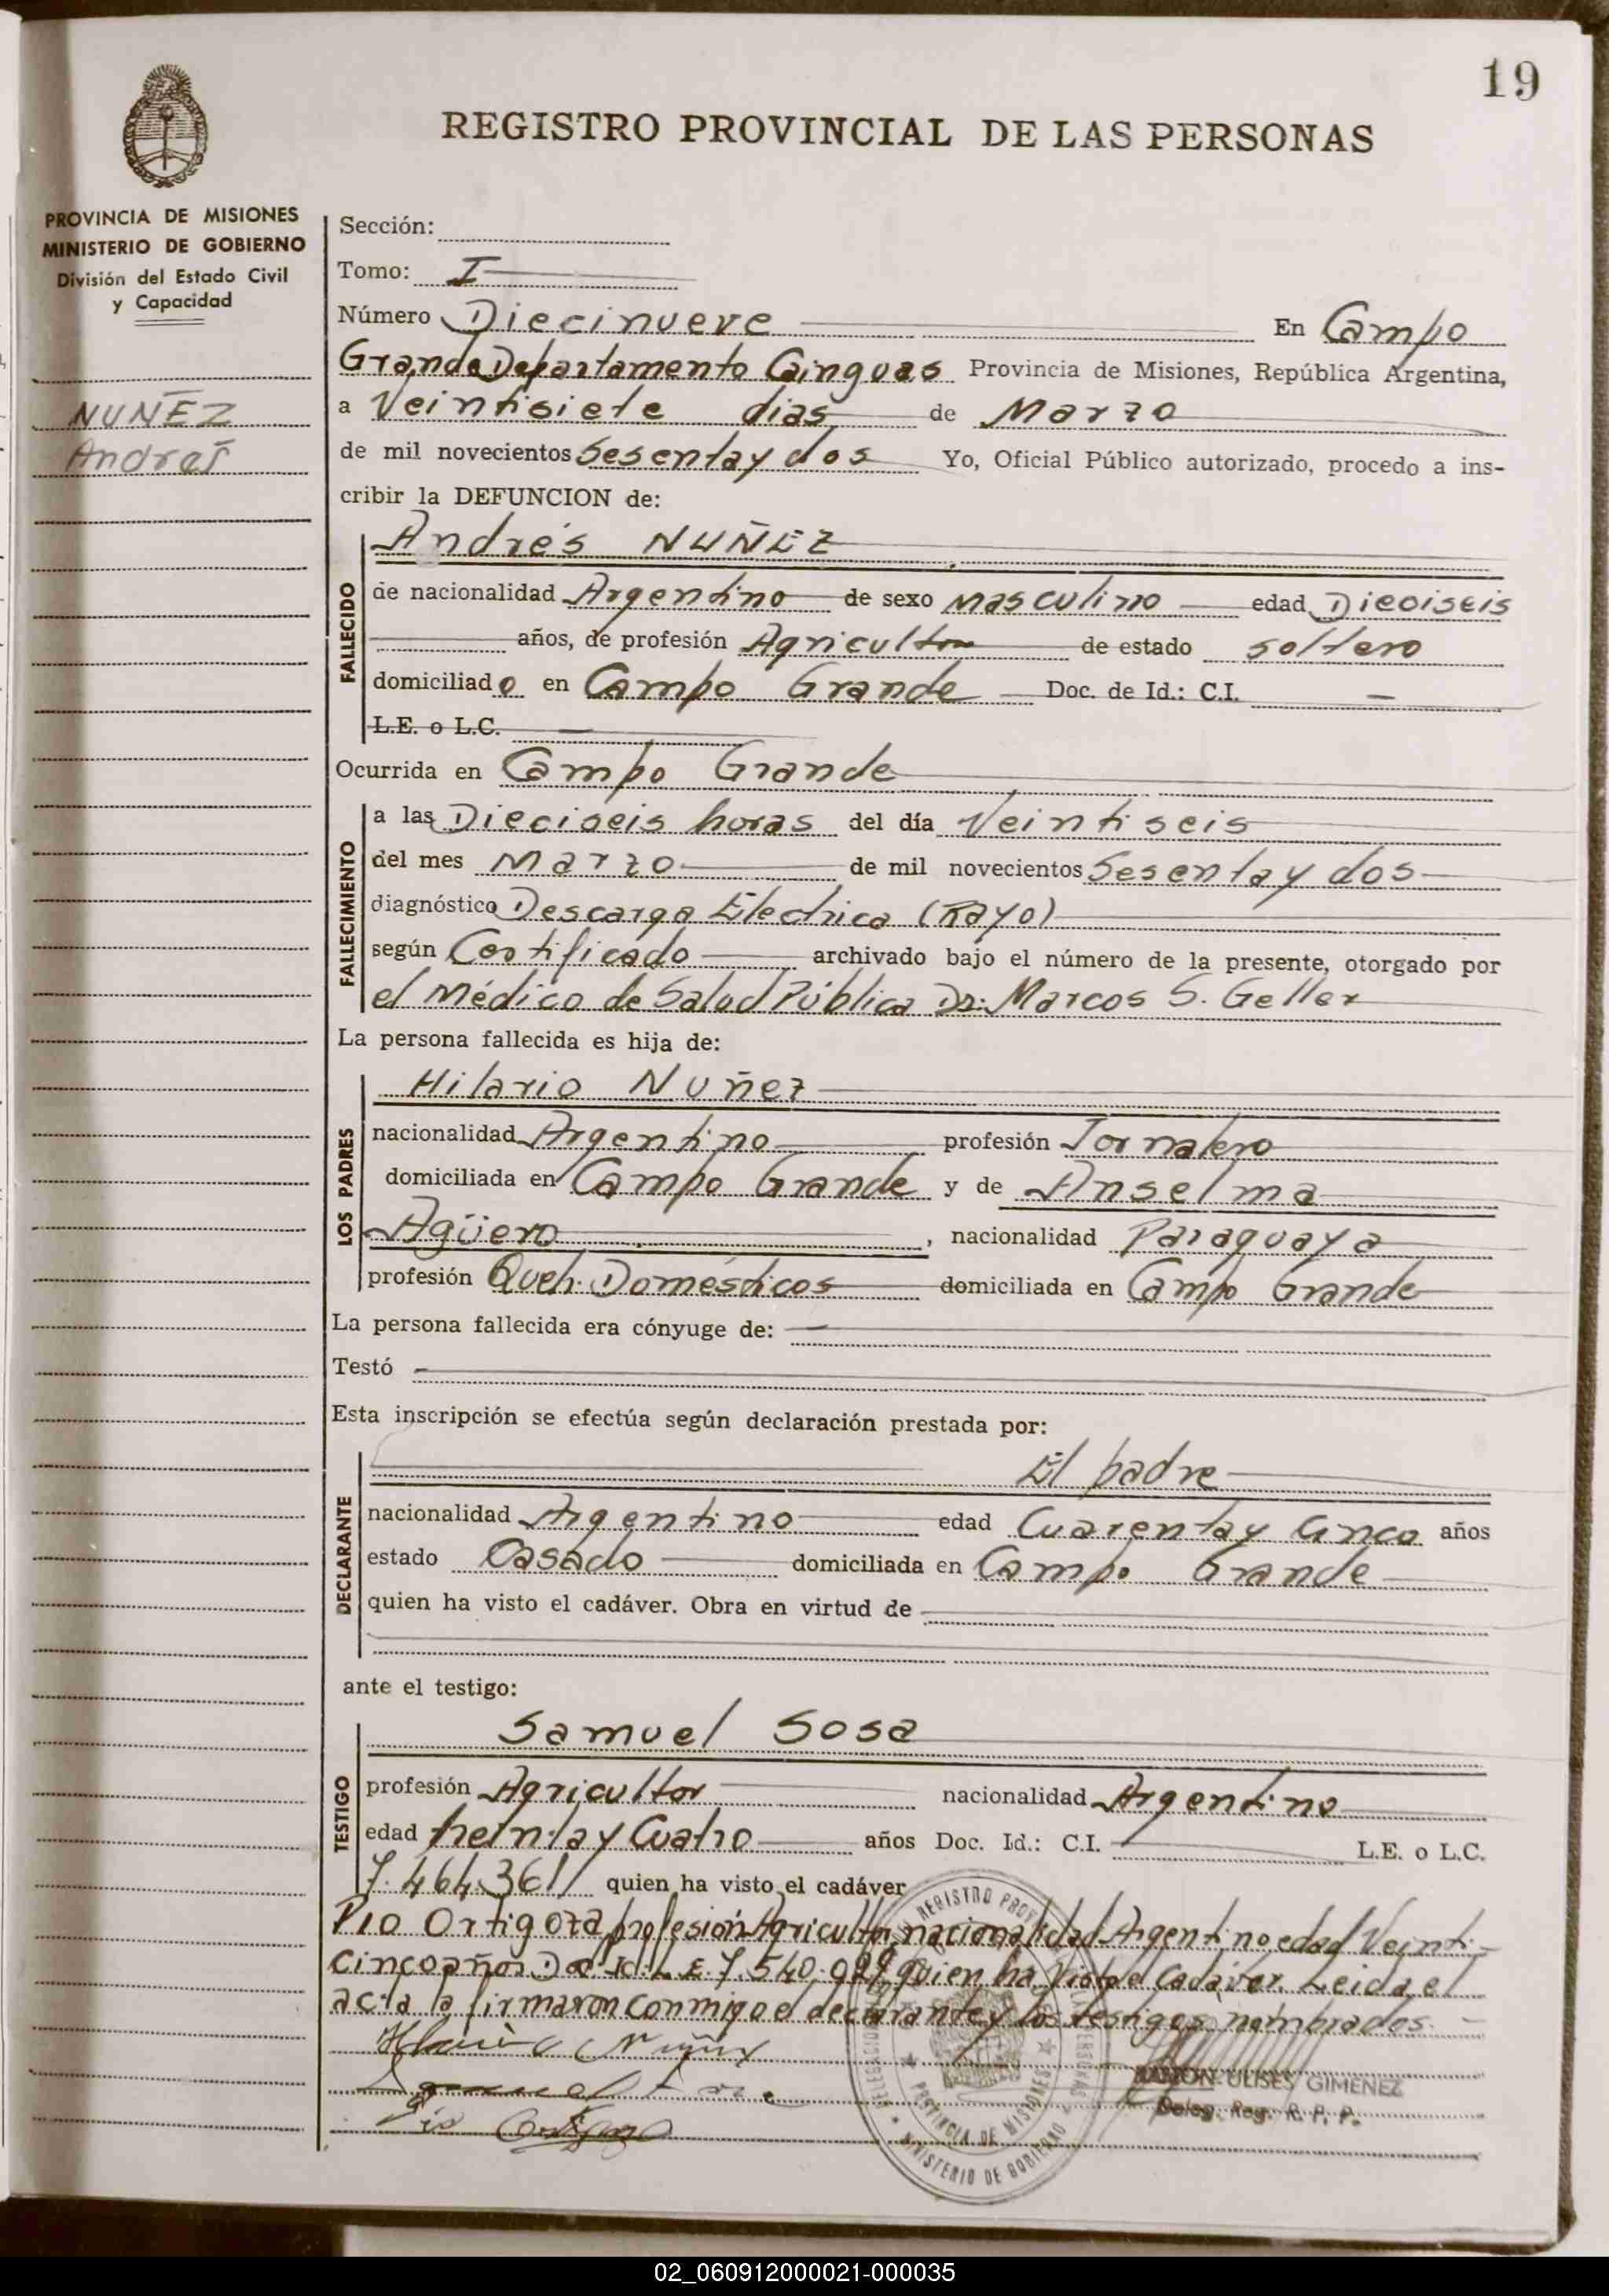 19
REGISTRO PROVINCIAL DE LAS PERSONAS
PROVINCIA DE MISIONES
MINISTERIO DE GOBIERNO
División del Estado Civil
y Capacidad
NUÑEZ
Andrés
Sección:
Tomo: I
Número Diecinueve En Campo
Grande Departamento Cainguas Provincia de Misiones, República Argentina,
a Veintisiete dias de Marzo
de mil novecientos Sesenta y dos Yo, Oficial Público autorizado, procedo a ins-
cribir la DEFUNCION de:
Andrés NUÑEZ
FALLECIDO
de nacionalidad Argentino de sexo masculino edad Dieciseis
años, de profesión Agricultor de estado soltero
domiciliado en Campo Grande Doc. de Id.: C.I. —
L.E. o L.C. —
Ocurrida en Campo Grande
FALLECIMIENTO
a las Dieciseis horas del día Veintiseis
del mes Marzo de mil novecientos Sesenta y dos
diagnóstico Descarga Electrica (Rayo)
según Certificado archivado bajo el número de la presente, otorgado por
el Médico de Salud Pública Dr: Marcos S. Geller
La persona fallecida es hija de:
LOS PADRES
Hilario Nuñez
nacionalidad Argentino profesión Jornalero
domiciliada en Campo Grande y de Anselma
Agüero, nacionalidad Paraguaya
profesión Queh. Domésticos domiciliada en Campo Grande
La persona fallecida era cónyuge de: —
Testó —
Esta inscripción se efectúa según declaración prestada por:
DECLARANTE
El padre
nacionalidad Argentino edad Cuarenta y Cinco años
estado Casado domiciliada en Campo Grande
quien ha visto el cadáver. Obra en virtud de
ante el testigo:
TESTIGO
Samuel Sosa
profesión Agricultor nacionalidad Argentino
edad treinta y Cuatro años Doc. Id.: C.I. L.E. o L.C.
7.464.361 quien ha visto el cadáver
Pio Ortigoza profesión Agricultor, nacionalidad Argentino edad Veinti-
Cinco años Doc Id: L.E. 7.540. quien ha visto el Cadaver. Leida el
acta la firmaron conmigo el declarante y los testigos nombrados. -
Hilario Nuñez
Pio Ortigoza
RAMON ULISES GIMENEZ
Deleg. Reg. R. P. P.
PROVINCIA DE MISIONES
MINISTERIO DE GOBIERNO
02_060912000021-000035